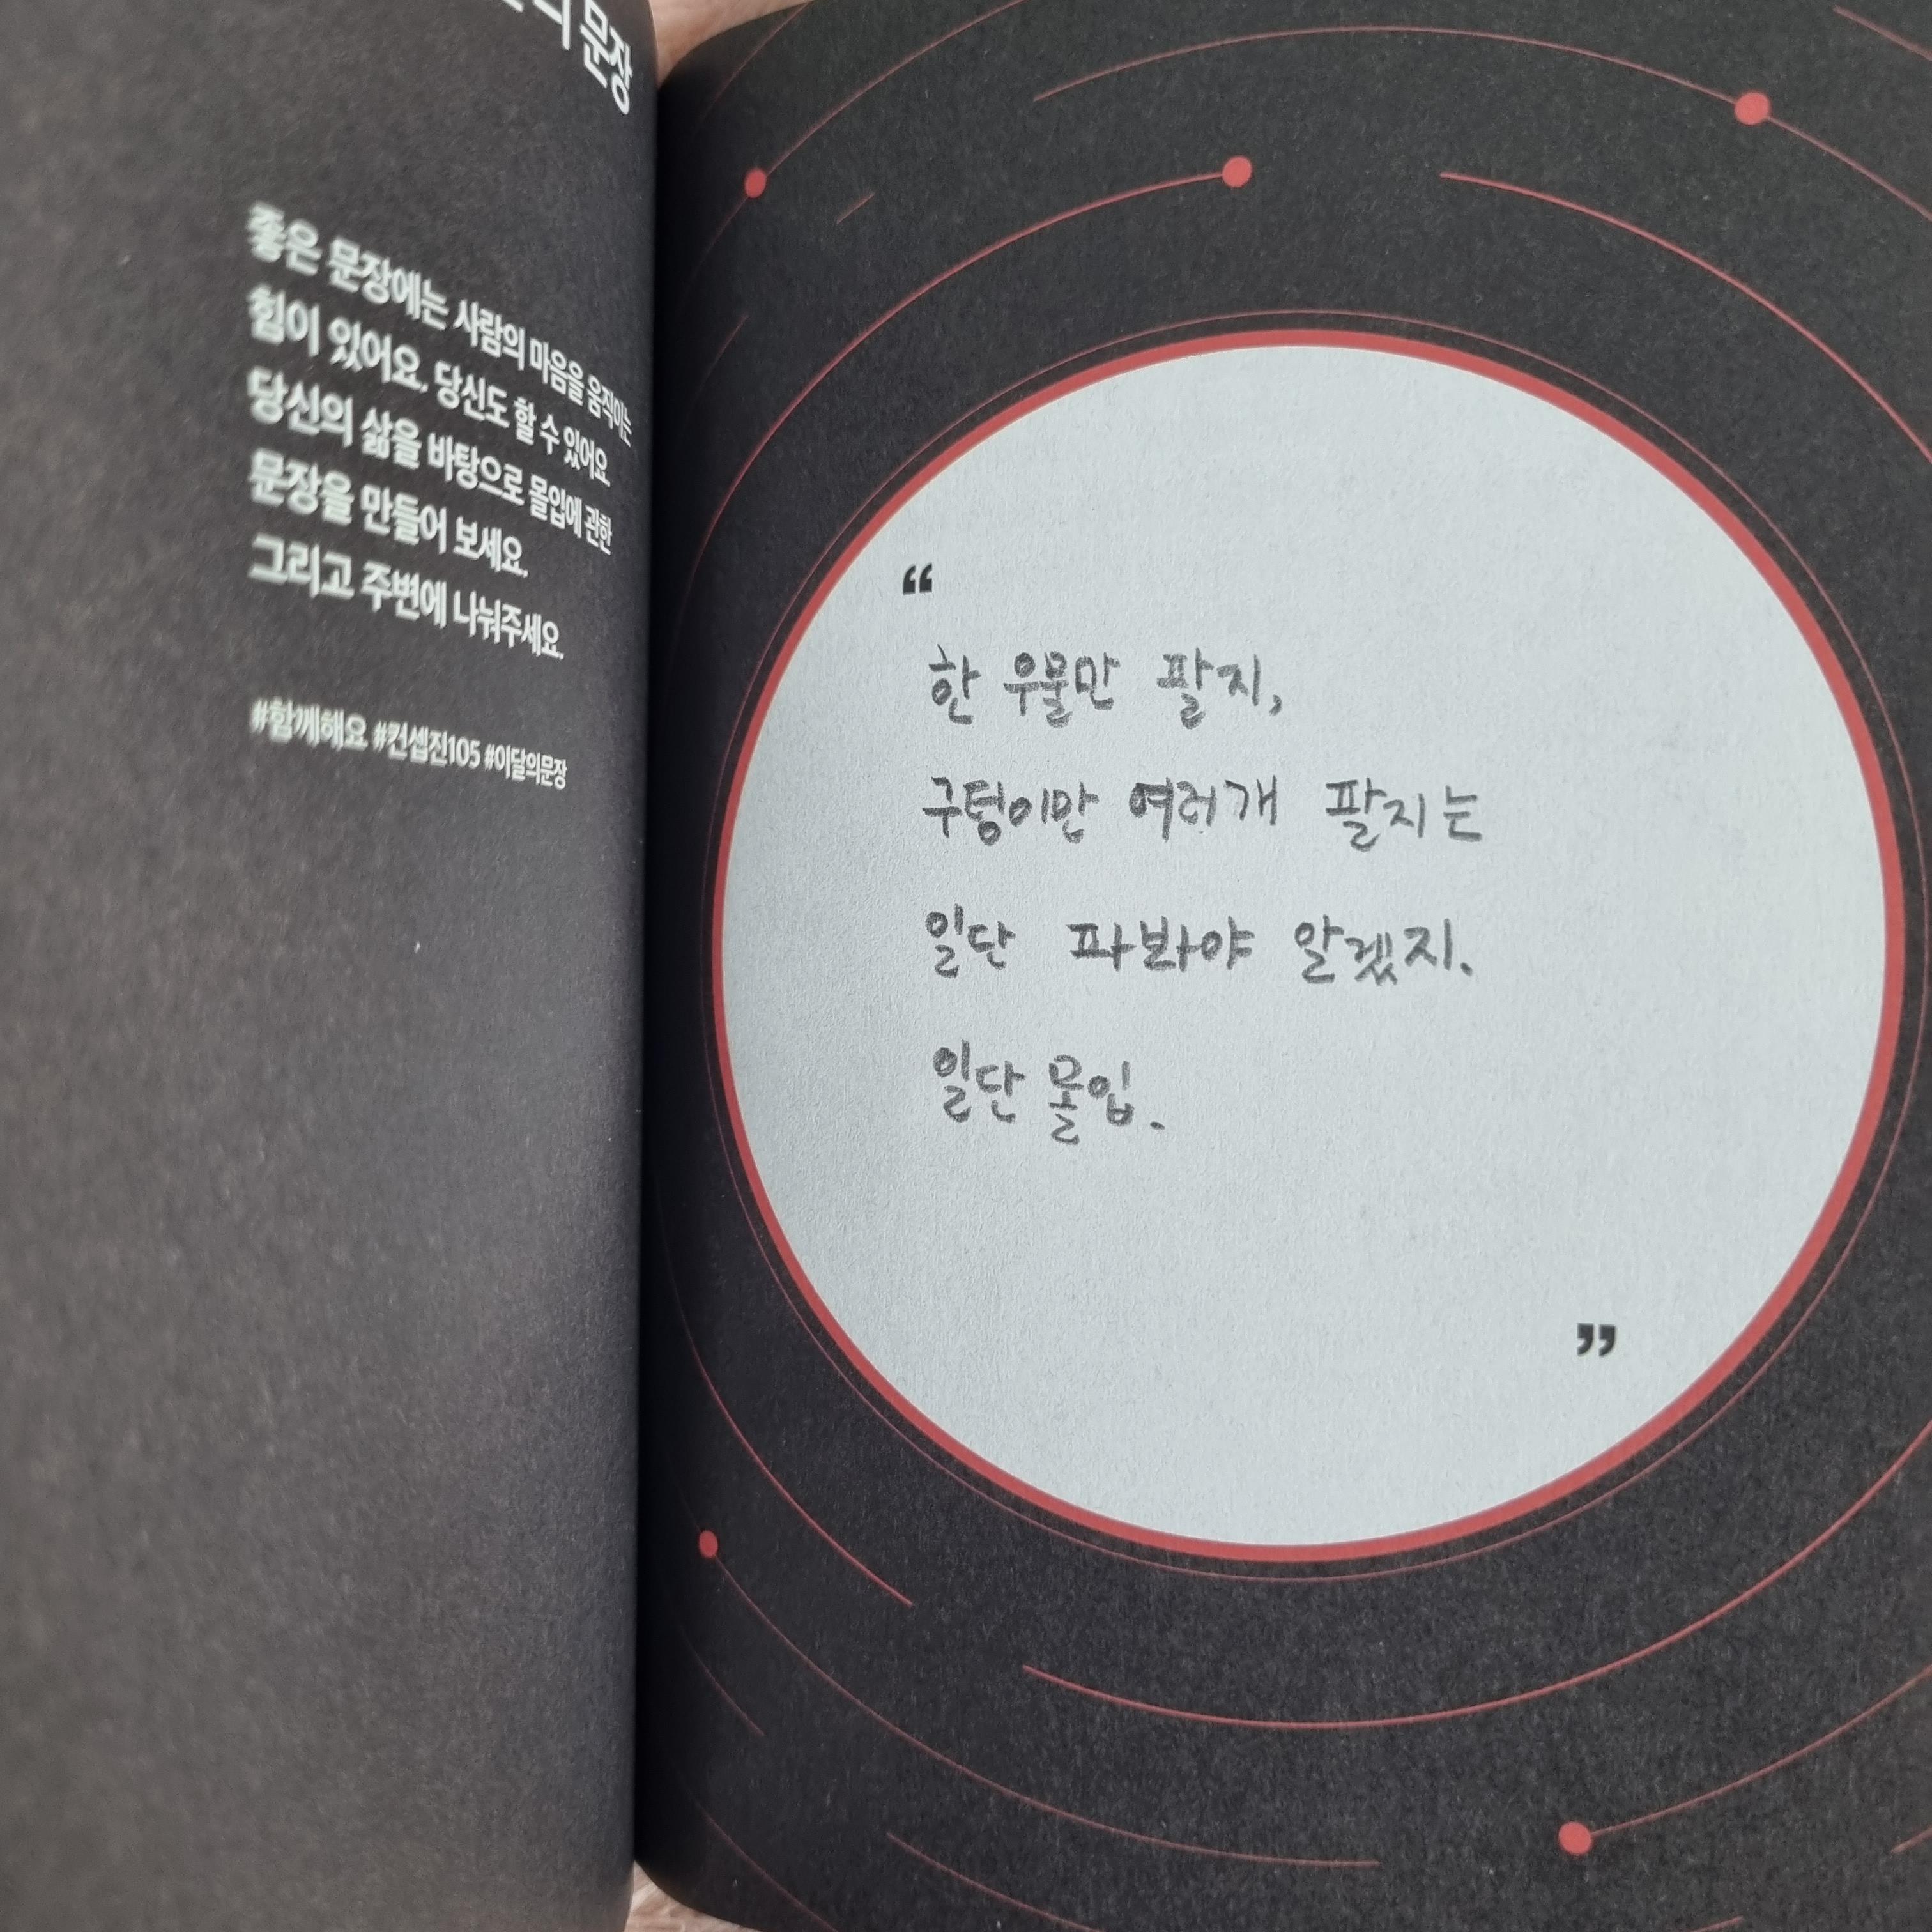 의 문장
좋은 문장에는 사람의 마음을 움직이는
힘이 있어요. 당신도 할 수 있어요.
당신의 삶을 바탕으로 몰입에 관한
문장을 만들어 보세요.
그리고 주변에 나눠주세요.
#함께해요 #컨셉진105 #이달의문장
“
한 우물만 팔지,
구텅이만 여러개 팔지는
일단 파봐야 알겠지.
일단 몰입.
”